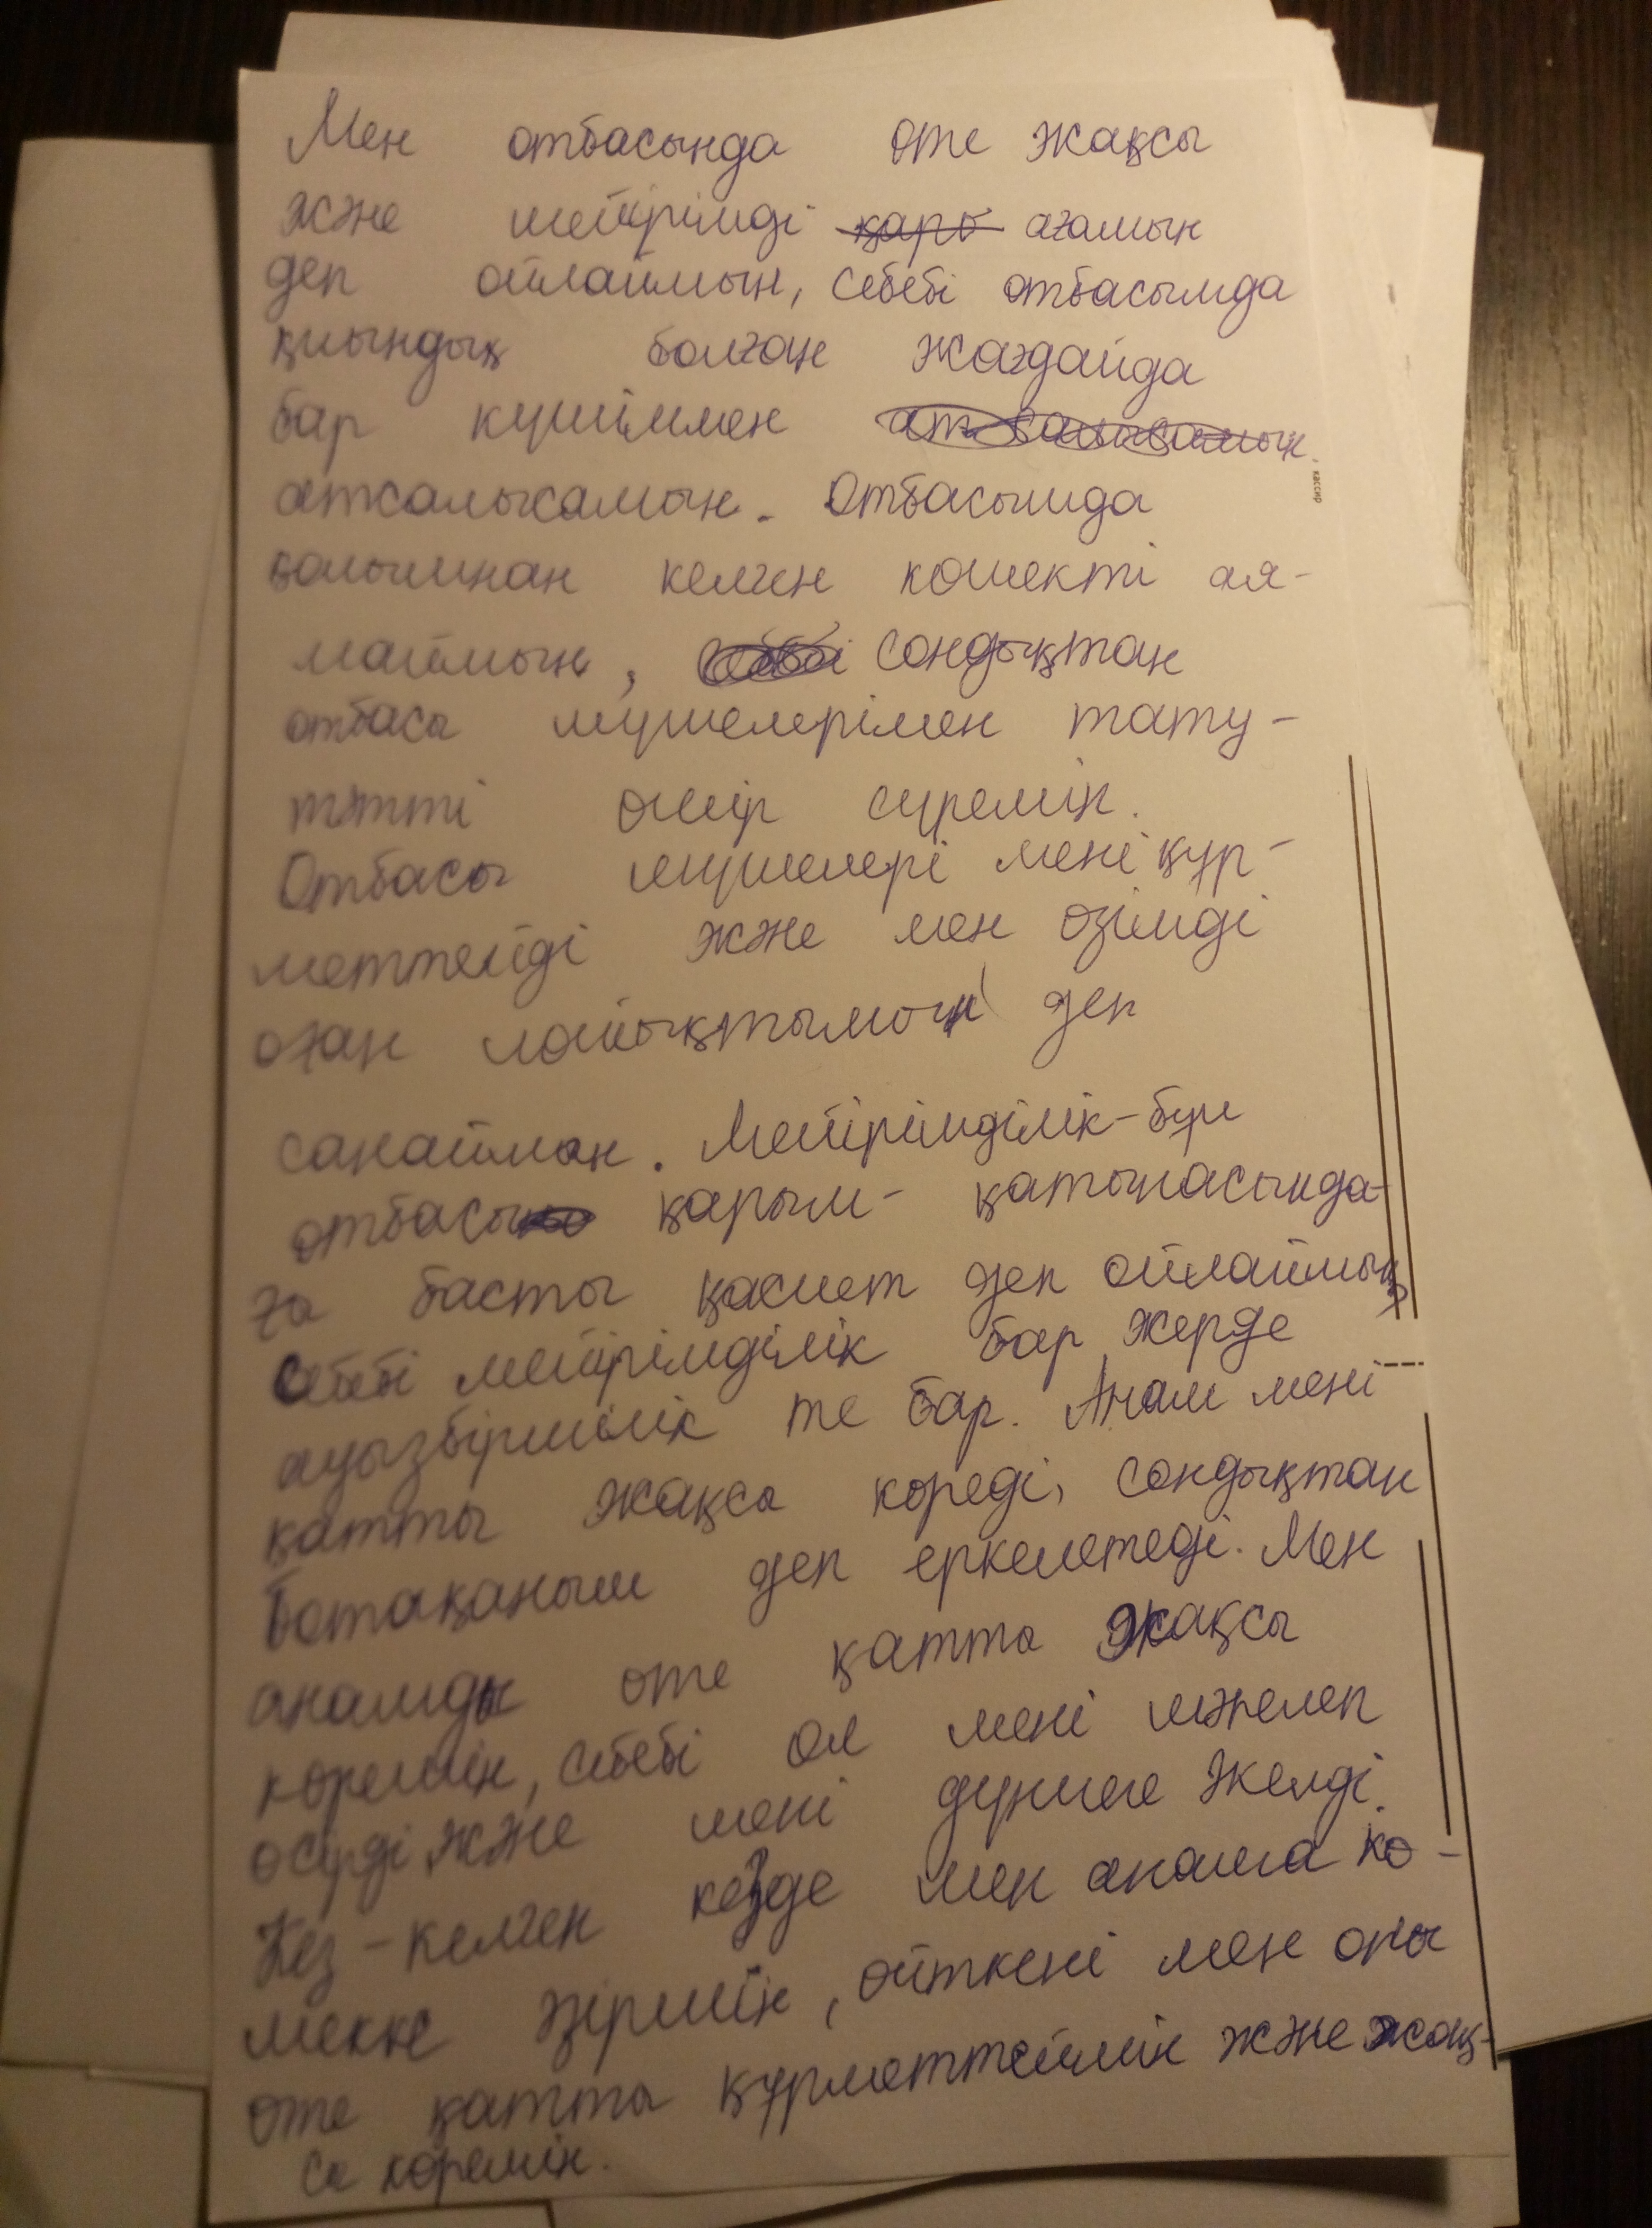 Мен отбасында өте жақсы
және мейірімді қары ағамын
деп ойлаймын, себебі отбасымда
қиындық болған жағдайда
бар күшіммен ат салысамын
атсалысамын. Отбасымда
қолымнан келген көмекті ая-
маймын, себебі сондықтан
отбасы мүшелерімен тату-
тәтті өмір сүремін.
Отбасы мүшелері мені құр-
меттейді және мен өзімді
оған лайықтымын деп
санаймын. Мейірімділік-бұл
отбасы қарым- қатынасында-
ғы басты қасиет деп ойлаймын,
себебі мейірімділік бар жерде
ауызбіршілік те бар. Анам мені
қатты жақсы көреді, сондықтан
ботақаным деп еркелетеді. Мен
анамды өте қатты жақсы
көремін, себебі ол мені мәпелеп
өсірді және мені дүниеге әкелді.
Кез-келген кезде мен анама кө-
мекке әзірмін, өйткені мен оны
өте қатты құрметтеймін және жақ-
сы көремін.
кассир